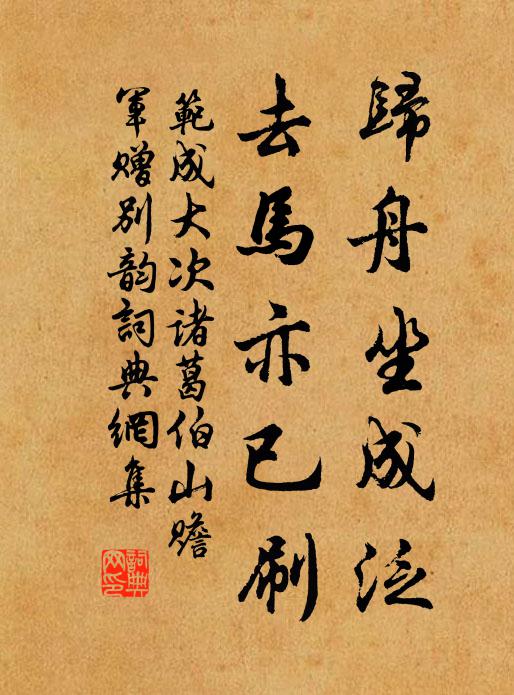 歸舟坐成泛
去馬亦已刷
範成大次諸葛伯山贍
軍贈別韵詞典網集
詞典
网印